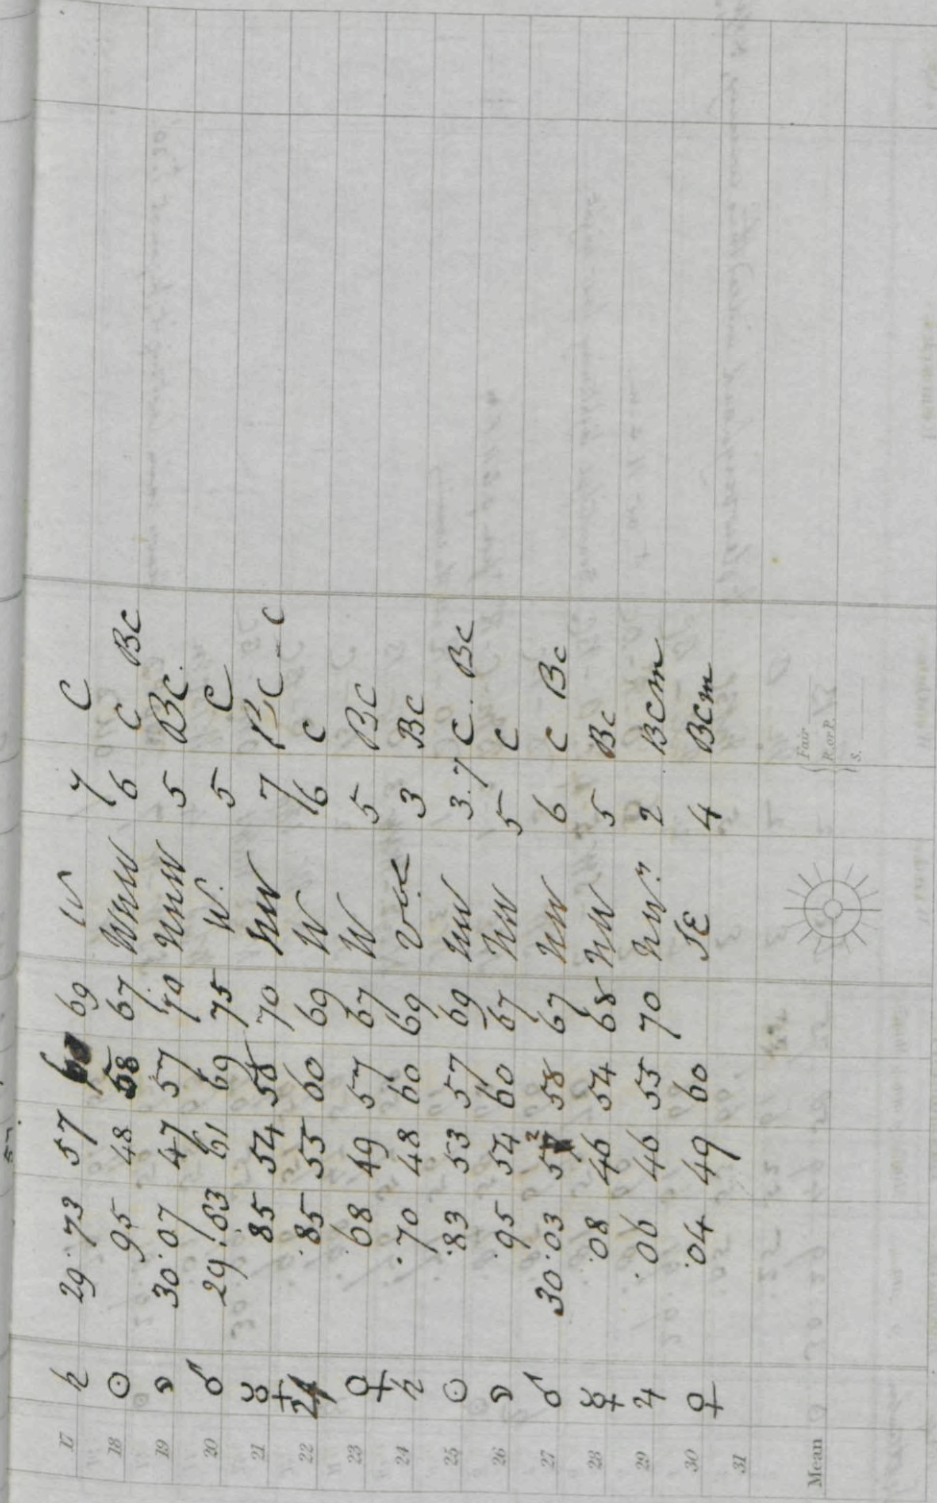 17 ♄ 29.73 57 69 W 7 C
18 ☉ .95 48 58 67 WNW 6 C BC
19 ☽ 30.07 47 57 70 NNW 5 BC.
20 ♂ 29.83 61 69 75 W. 5 C
21 ☿ .85 54 58 70 NW 7 BC - C
22 ♃ .85 55 60 69 W 6 C
23 ♀ .68 49 57 67 W 5 BC
24 ♄ .70 48 60 69 3 BC
25 ☉ .83 53 57 69 NW 3.7 C. BC
26 ☽ .95 54 60 67 NW 5 C
27 ♂ 30.03 52 58 67 NW 6 C BC
28 ☿ .08 46 54 68 NW 5 BC
29 ♃ .06 46 55 70 NW? 2 BCm
30 ♀ .04 49 60 SE 4 BCm
31
Mean
Fair
R. or P.
S.